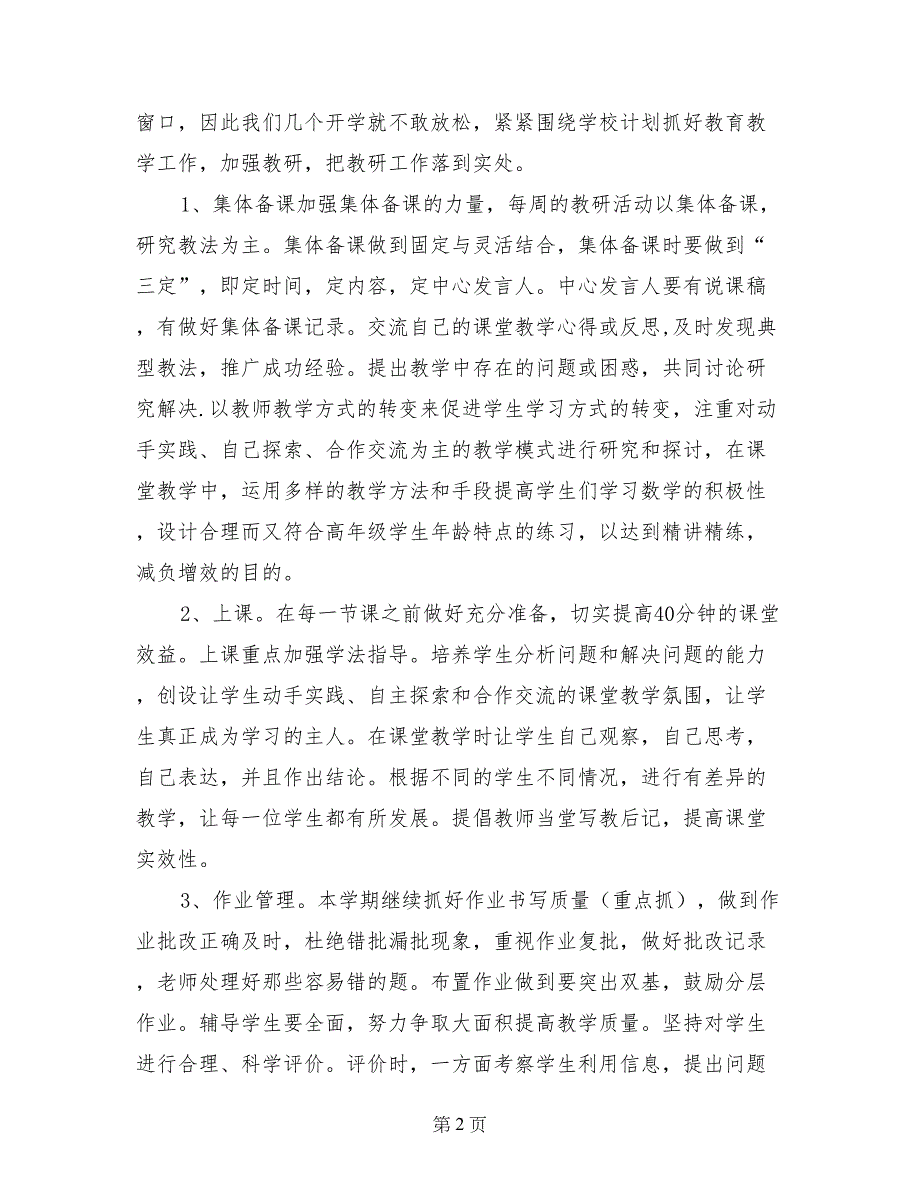 窗口，因此我们几个开学就不敢放松，紧紧围绕学校计划抓好教育教
学工作，加强教研，把教研工作落到实处。
1、集体备课加强集体备课的力量，每周的教研活动以集体备课，
研究教法为主。集体备课做到固定与灵活结合，集体备课时要做到“
三定”，即定时间，定内容，定中心发言人。中心发言人要有说课稿
，有做好集体备课记录。交流自己的课堂教学心得或反思,及时发现典
型教法，推广成功经验。提出教学中存在的问题或困惑，共同讨论研
究解决.以教师教学方式的转变来促进学生学习方式的转变，注重对动
手实践、自己探索、合作交流为主的教学模式进行研究和探讨，在课
堂教学中，运用多样的教学方法和手段提高学生们学习数学的积极性
，设计合理而又符合高年级学生年龄特点的练习，以达到精讲精练，
减负增效的目的。
2、上课。在每一节课之前做好充分准备，切实提高40分钟的课堂
效益。上课重点加强学法指导。培养学生分析问题和解决问题的能力
，创设让学生动手实践、自主探索和合作交流的课堂教学氛围，让学
生真正成为学习的主人。在课堂教学时让学生自己观察，自己思考，
自己表达，并且作出结论。根据不同的学生不同情况，进行有差异的
教学，让每一位学生都有所发展。提倡教师当堂写教后记，提高课堂
实效性。
3、作业管理。本学期继续抓好作业书写质量（重点抓），做到作
业批改正确及时，杜绝错批漏批现象，重视作业复批，做好批改记录
，老师处理好那些容易错的题。布置作业做到要突出双基，鼓励分层
作业。辅导学生要全面，努力争取大面积提高教学质量。坚持对学生
进行合理、科学评价。评价时，一方面考察学生利用信息，提出问题
第 2 页